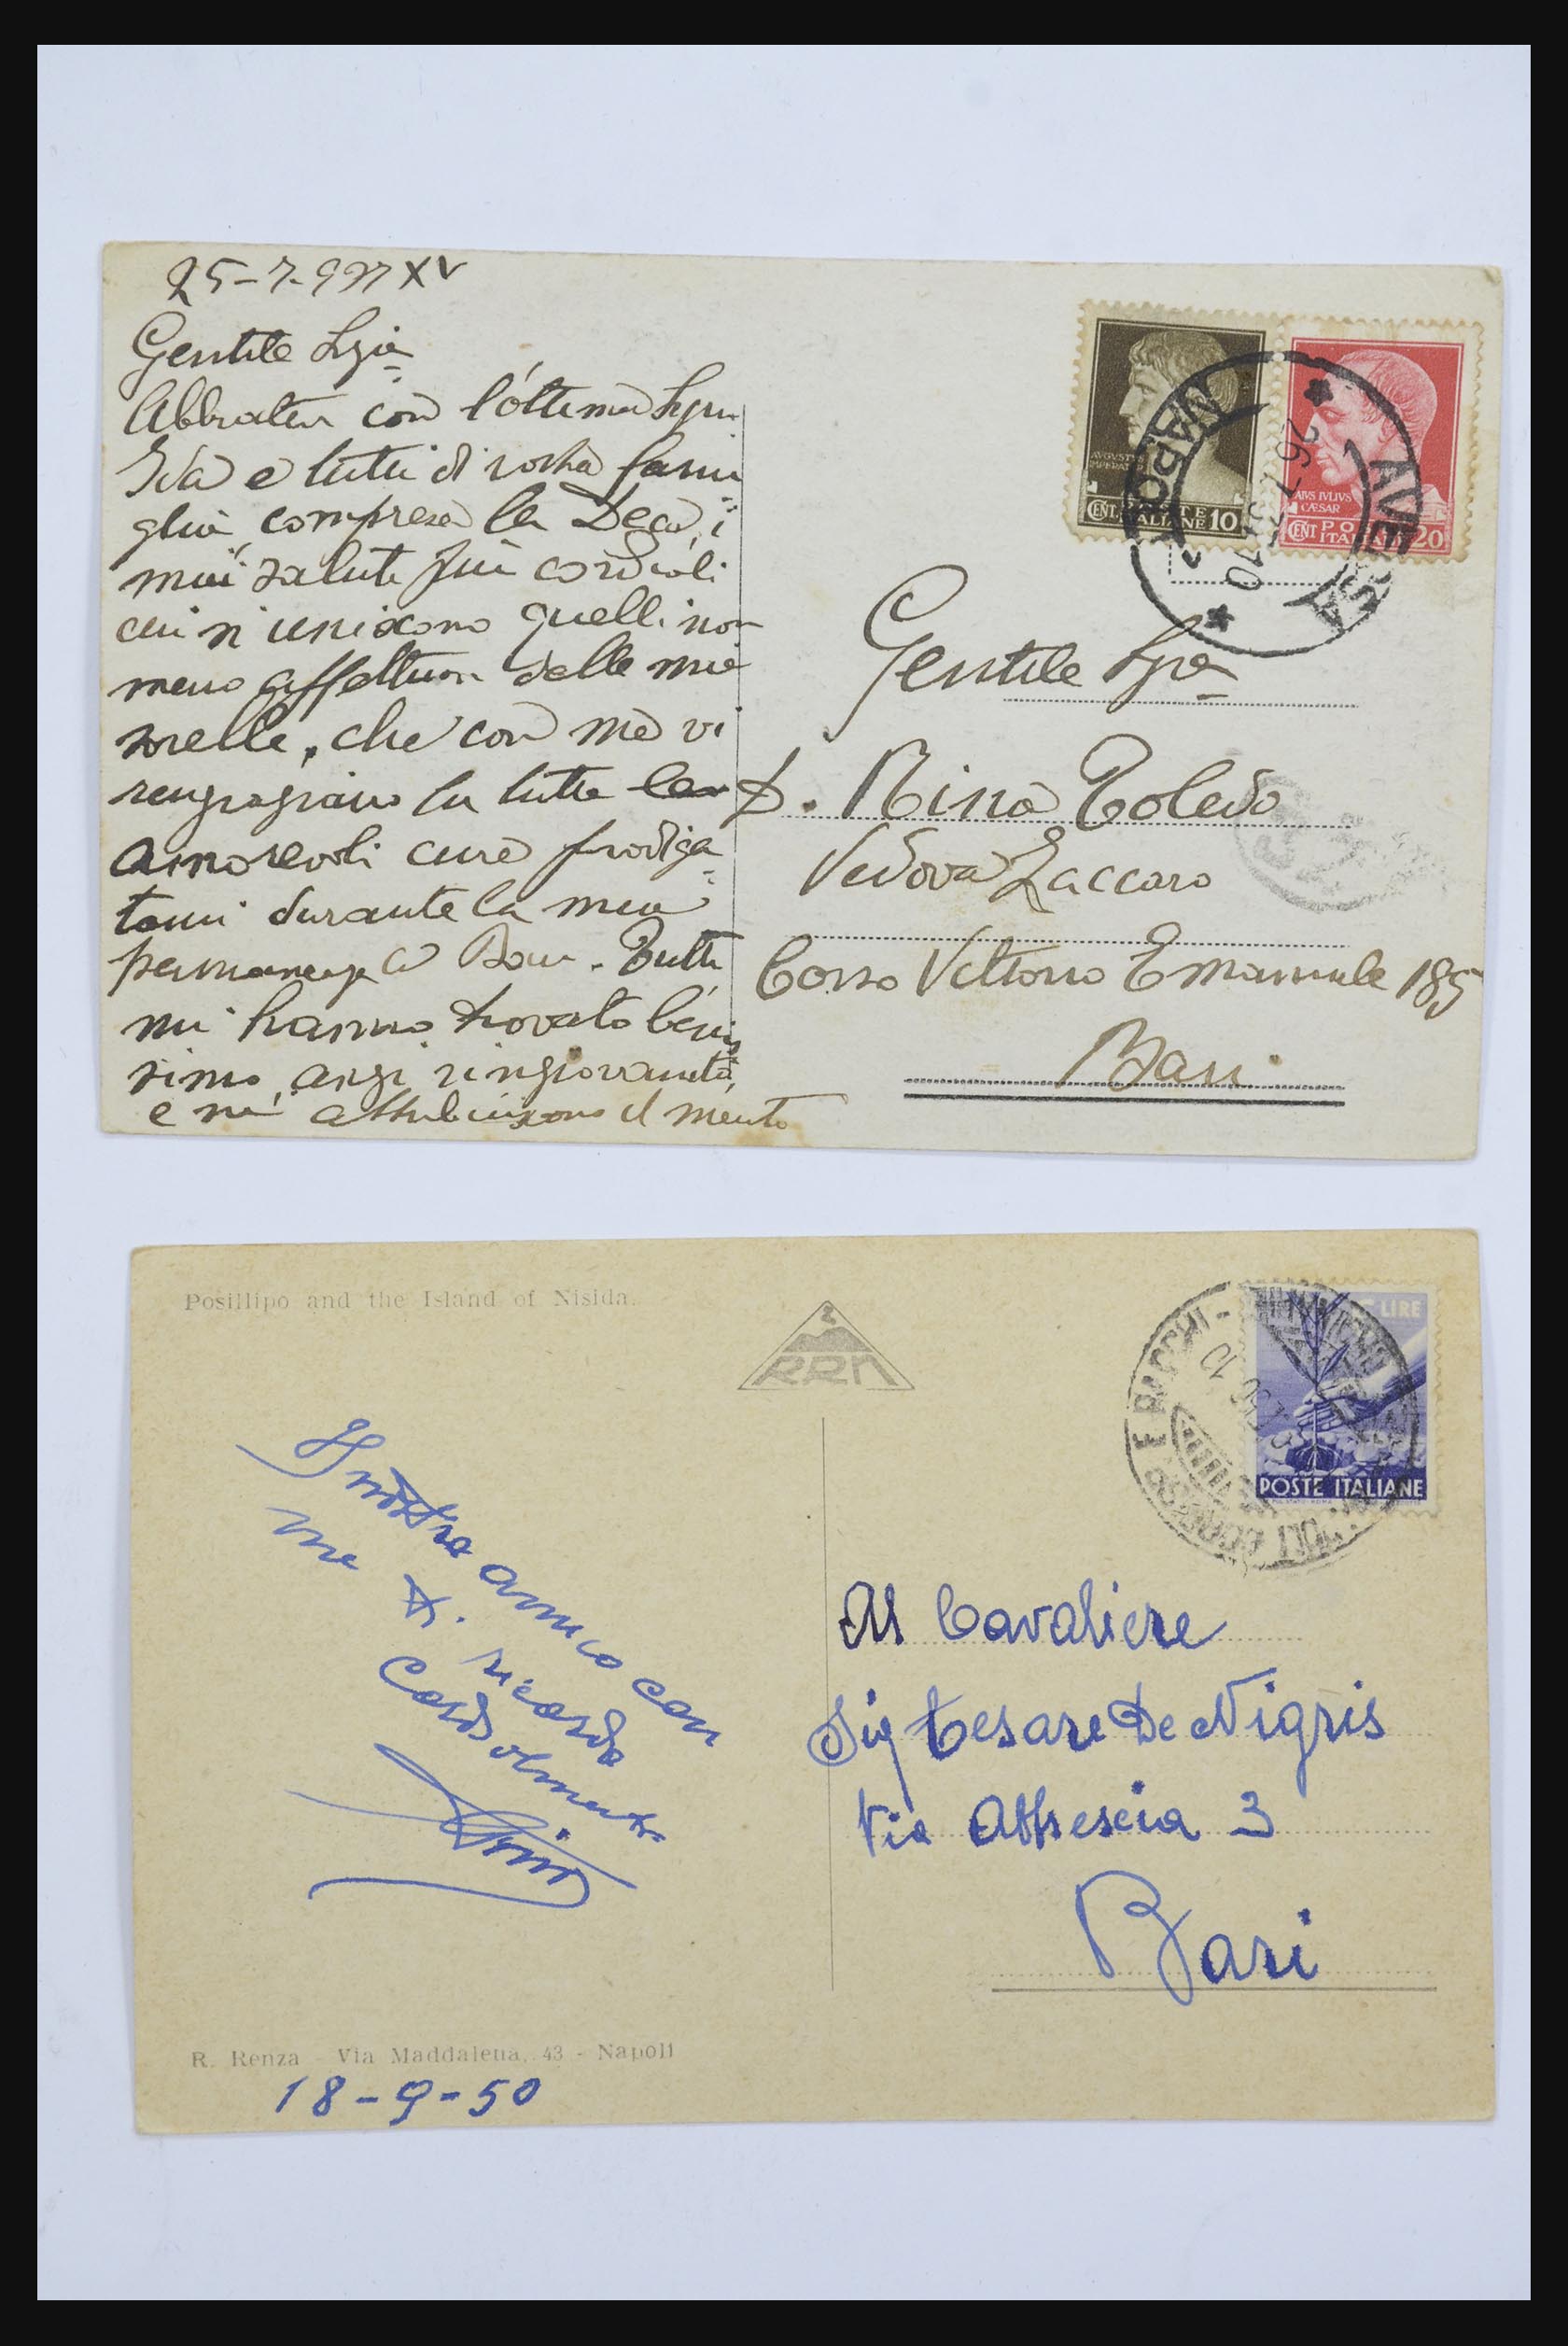 25-7-937 XV
Gentile Sig.ra
Abbiatevi con l'ottima Sig.na
Ida e tutti di vostra fami
glia, compresa la Deca, i
miei saluti più cordiali
cui si uniscono quelli non
meno affettuosi delle mie
sorelle, che con me vi
ringraziano di tutte le
amorevoli cure prodiga
temi durante la mia
permanenza a Bari. Tutti
mi hanno trovato benis
simo, anzi ringiovanito,
e ne attribuiscono il merito
AUGUSTUS
IMPERAT
CENT. POSTE ITALIANE 10
CAIVS IVLIVS
CÆSAR
CENT POSTE ITALIANE 20
AVERSA
NAPOLI
26.7.37 10
Gentile Sig.ra
D. Nina Toledo
Vedova Zaccaro
Corso Vittorio Emanuele 185
Bari
Posillipo and the Island of Nisida.
RRN
LIRE
POSTE ITALIANE
E PACCHI -
nostro amico con
me ti ricorda
Cordialmente
Al Cavaliere
Sig Cesare De Nigris
Via 3
Bari
R. Renza - Via Maddalena, 43 - Napoli
18-9-50